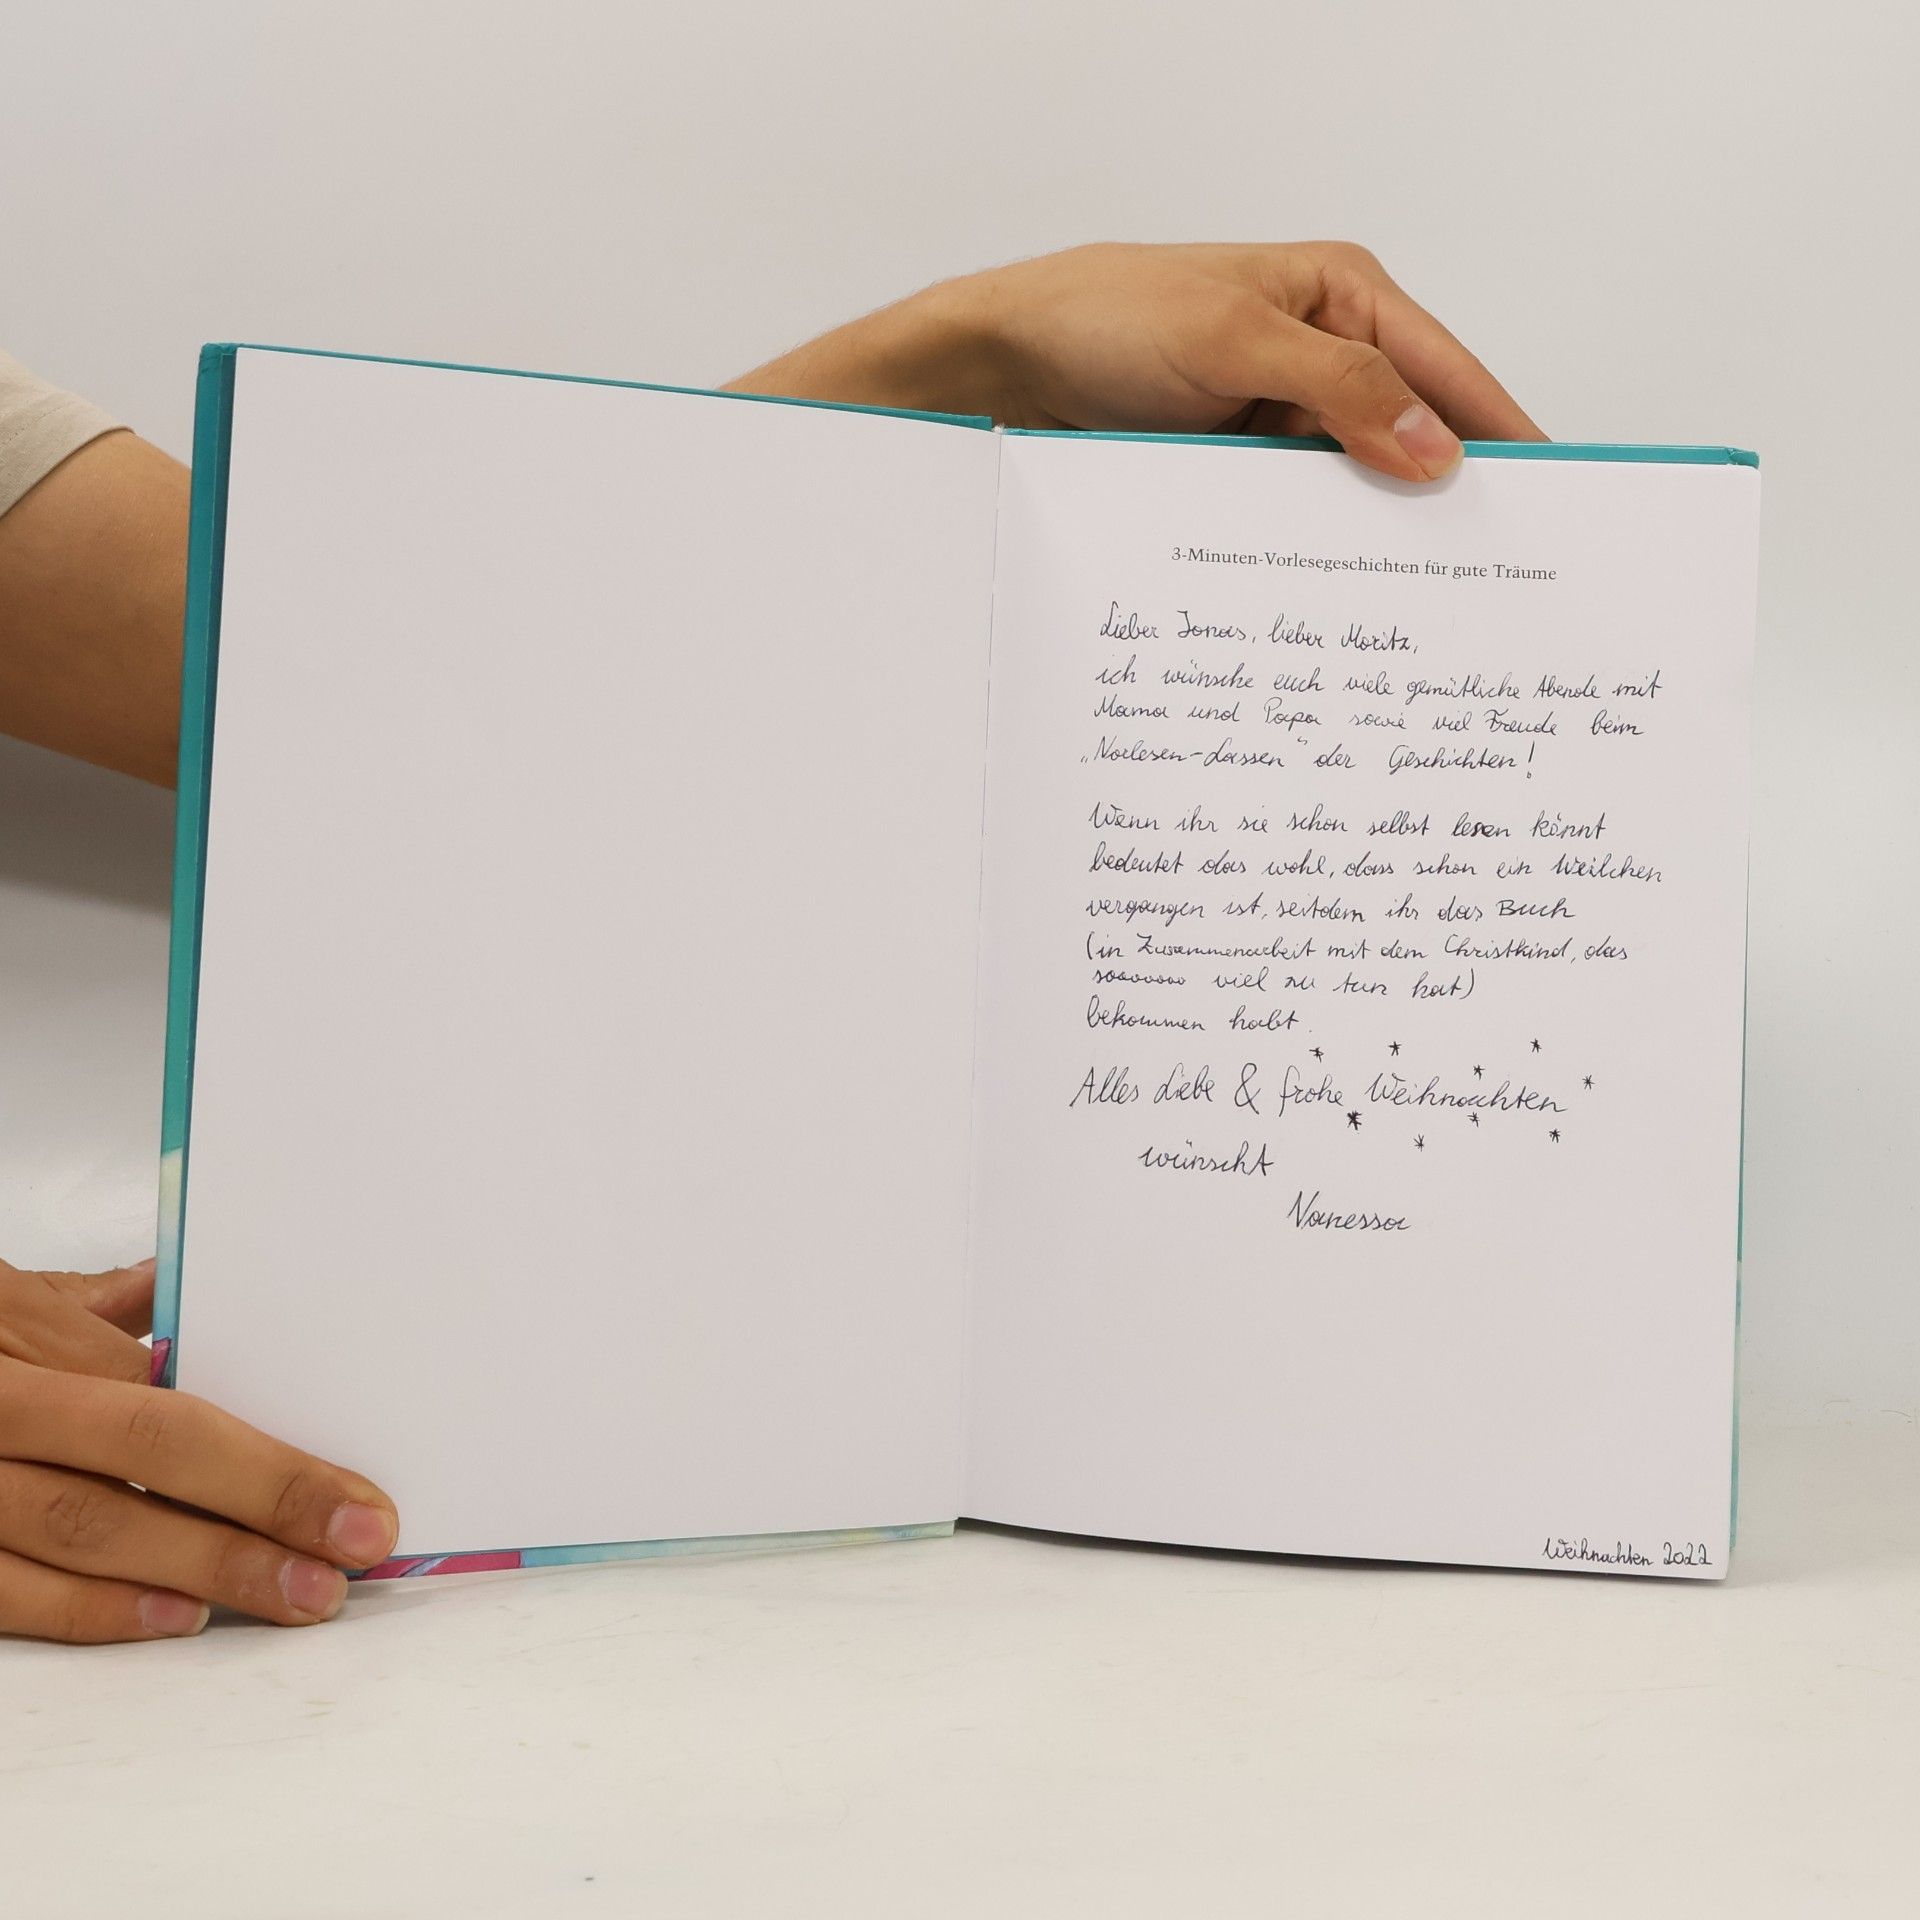 3-Minuten-Vorlesegeschichten für gute Träume
Lieber Jonas, lieber Moritz,
ich wünsche euch viele gemütliche Abende mit
Mama und Papa sowie viel Freude beim
„Vorlesen-Lassen“ der Geschichten!
Wenn ihr sie schon selbst lesen könnt
bedeutet das wohl, dass schon ein Weilchen
vergangen ist, seitdem ihr das Buch
(in Zusammenarbeit mit dem Christkind, das
soooooooo viel zu tun hat)
bekommen habt.
Alles Liebe & frohe Weihnachten
wünscht
Vanessa
Weihnachten 2022